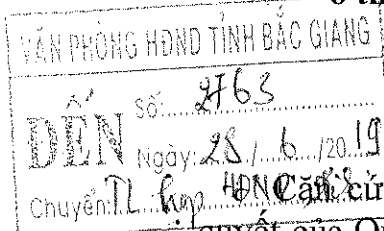 VĂN PHÒNG HĐND TỈNH BẮC GIANG
ĐẾN
Số: 2763
Ngày: 28 / 6 /2019
Chuyển: TL họp HĐND
Căn cứ
quyết của